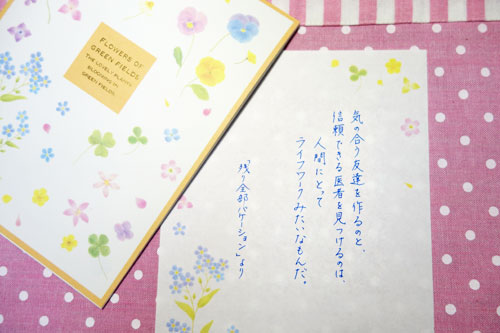 FLOWERS OF
GREEN FIELDS
THE LOVELY PLANTS
BLOOMING IN
GREEN FIELDS.
気の合う友達を作るのと、
信頼できる医者を見つけるのは、
人間にとって
ライフワークみたいなもんだ。
「残り全部バケーション」より